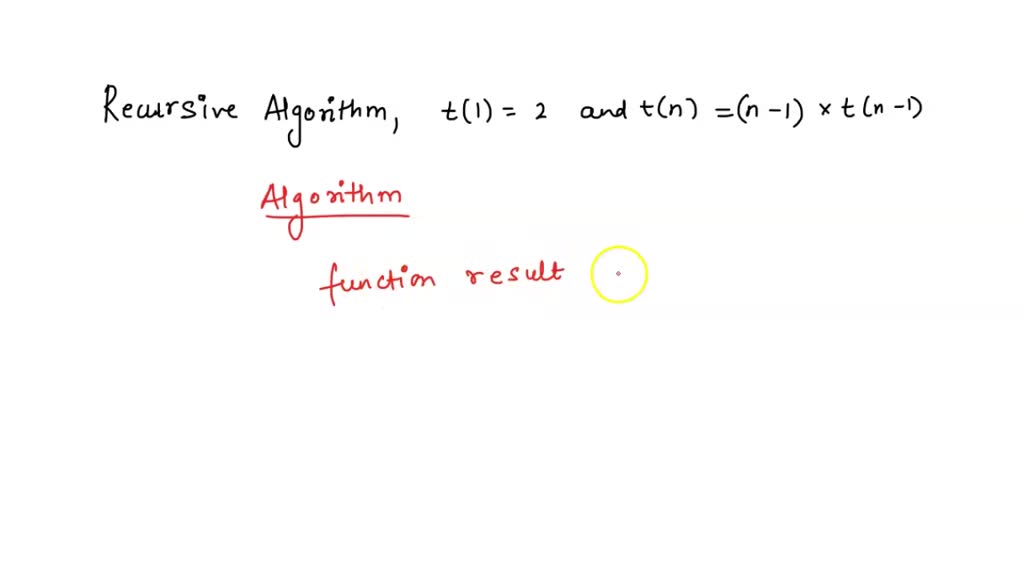 Recursive Algorithm, t(1) = 2 and t(n) =(n-1) × t(n-1)
Algorithm
function result